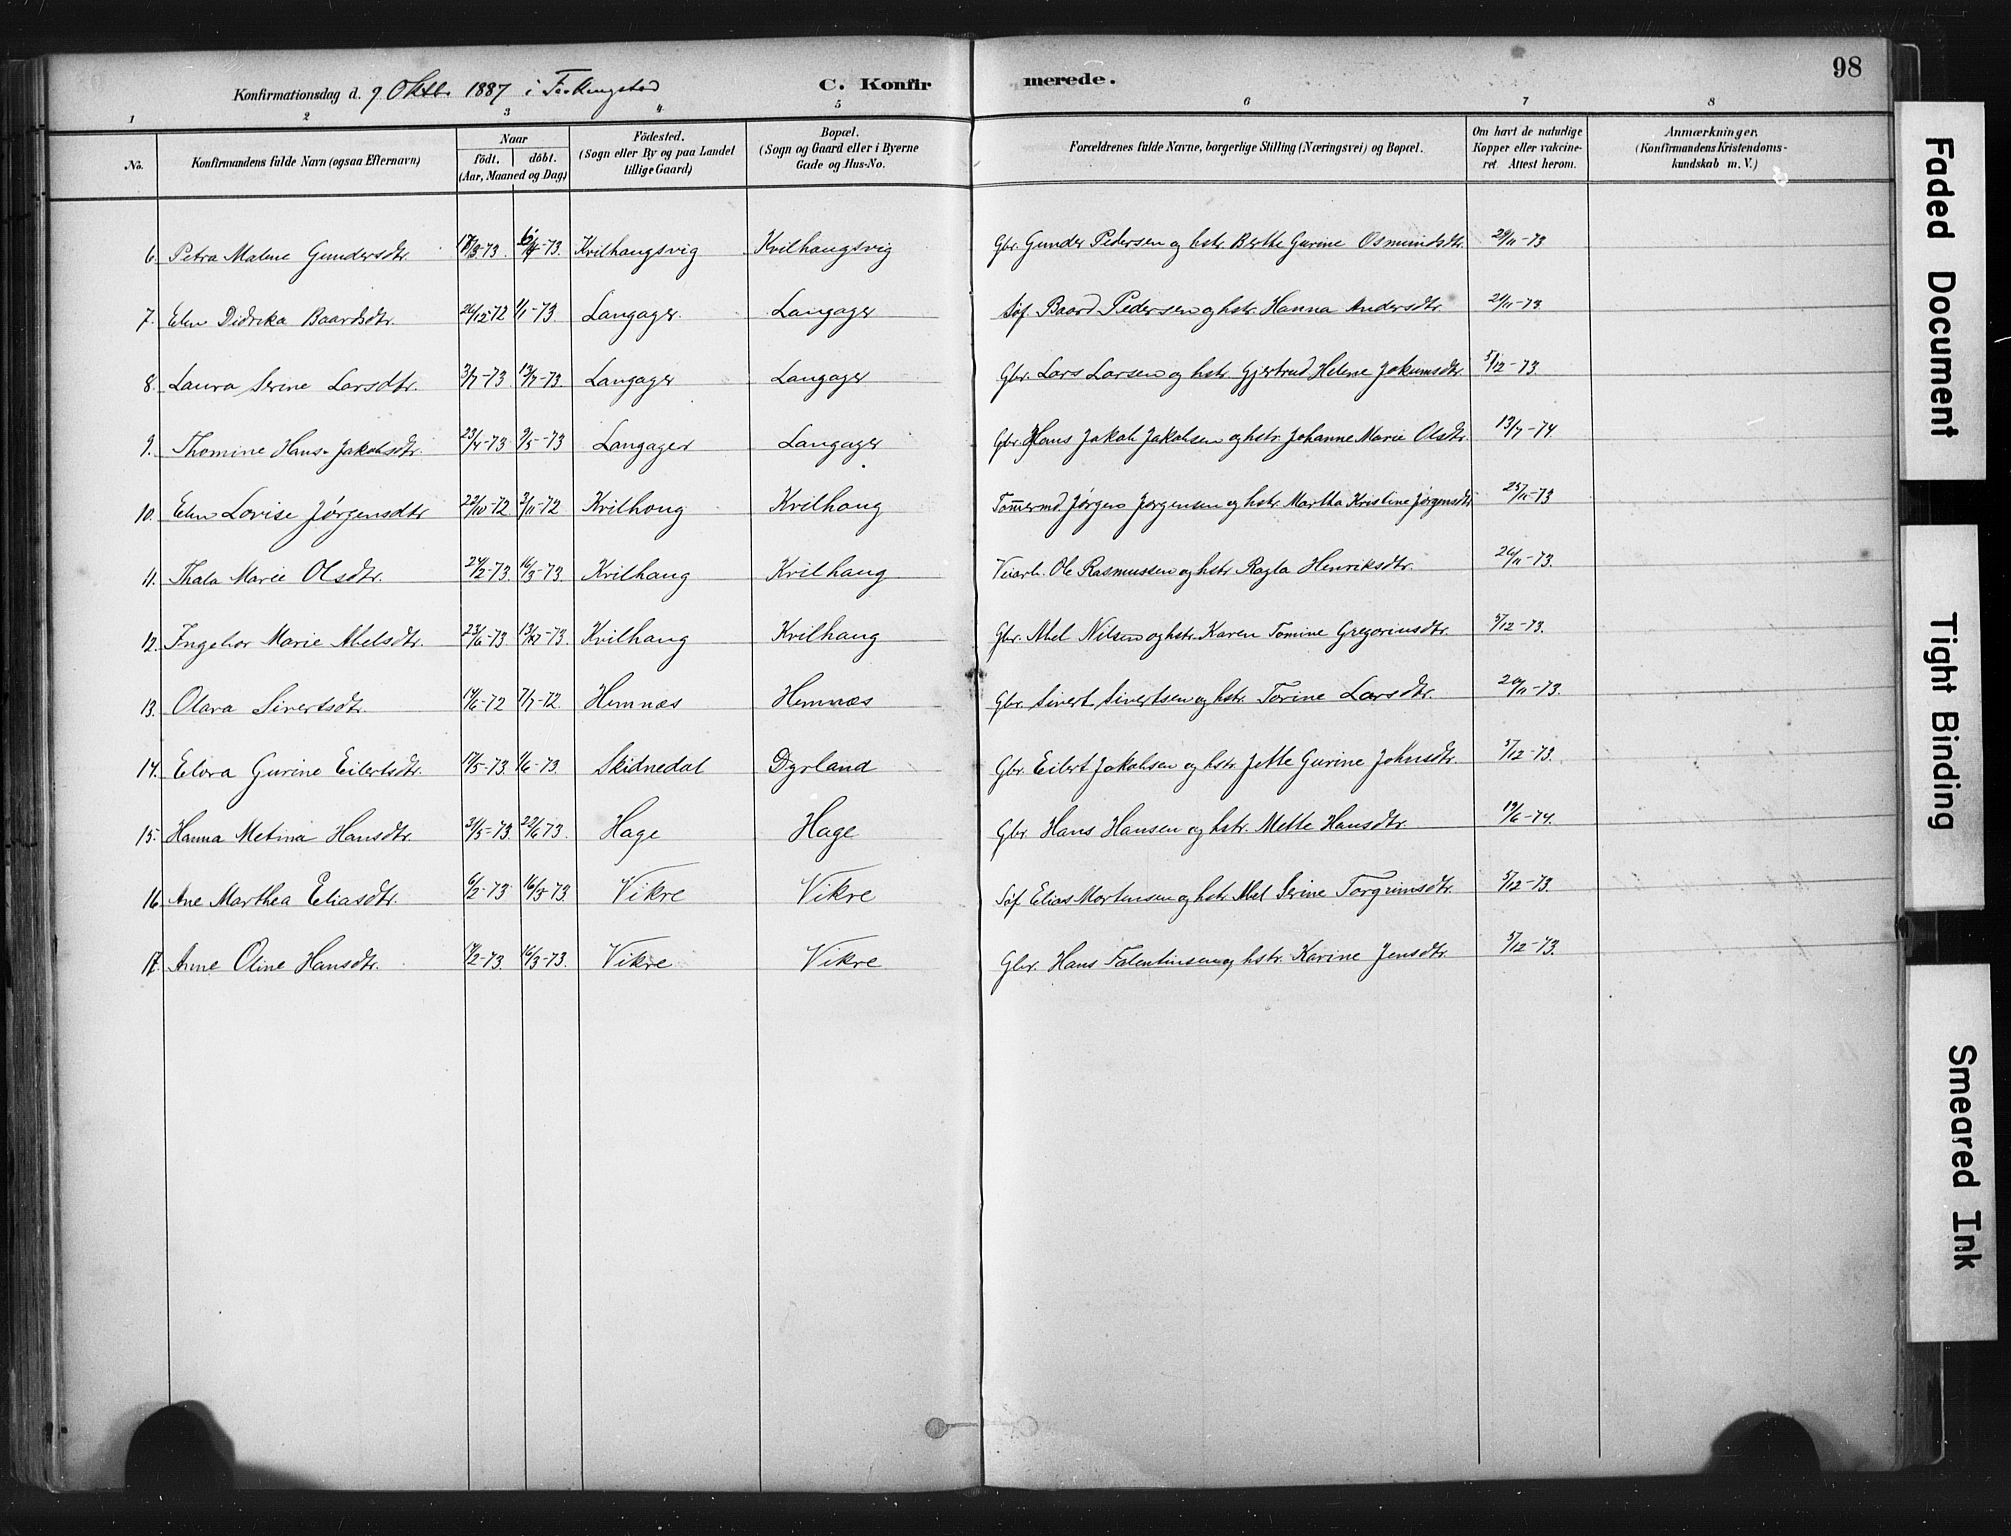 98
Konfirmationsdag d. 9 Oktb. 1887 i
C. Konfirmerede.
1 2 3 4 5 6 7 8
No.
Konfirmandens fulde Navn (ogsaa Efternavn)
Naar
födt. döbt.
(Aar, Maaned og Dag)
Födested.
(Sogn eller By og paa Landet
tillige Gaard)
Bopæl.
(Sogn og Gaard eller i Byerne
Gade og Hus-No.
Forældrenes fulde Navne, borgerlige Stilling (Næringsvei) og Bopæl.
Om havt de naturlige
Kopper eller vakcine-
ret Attest herom.
Anmærkninger.
(Konfirmandens Kristendoms-
kundskab m. V.)
6. Petra Malene Gundersdtr. 17/3-73. Kvilhaugsvig Kvilhaugsvig Gbr. Gunder Pedersen og hstr. Berthe Gurine Osmundsdtr. 29/11-73
7. Elen Didrika Baardsdtr. 26/12-72 1/1-73. Langager Langager Søf. Baard Pedersen og hstr. Hanna Andersdtr. 29/11-73.
8. Laura Serine Larsdtr. 3/7-73 13/7-73. Langager Langager Gbr. Lars Larsen og hstr. Gjertrud Helene Jokumsdtr. 5/12-73.
9. Thomine Hans-Jakobsdtr. 23/4-73 9/5-73 Langager Langager Gbr Hans Jakob Jakobsen og hstr. Johanne Marie Olsdtr. 13/7-74
10. Elen Lovise Jørgensdtr 22/10-72 3/11-72 Kvilhaug Kvilhaug Tømermd Jørgen Jørgensen og hstr. Martha Kristine Jørgensdtr 25/11-73
11. Thala Marie Olsdtr. 24/2-73 16/3-73. Kvilhaug Kvilhaug Veiarb. Ole Rasmussen og hstr. Ragla Henriksdtr. 26/11-73.
12. Ingebor Marie Abelsdtr. 23/6-73. 13/7-73. Kvilhaug Kvilhaug Gbr. Abel Nilsen og hstr. Karen Tomine Gregoriusdtr. 5/12-73.
13. Olava Sivertsdtr. 14/6-72 7/7-72. Hemnæs Hemnæs Gbr. Sivert Sivertsen og hstr. Torine Larsdtr. 29/11-73.
14. Elora Gurine Eilertsdtr. 17/5-73. 1/6-73. Skidnedal Dyrland Gbr. Eilert Jakobsen og hstr. Jette Gurine Johnsdtr. 5/12-73.
15. Hanna Metina Hansdtr. 31/5-73. 22/6 73. Hage Hage Gbr Hans Hansen og hstr. Mette Hansdtr. 19/6-74.
16. Ane Marthea Eliasdtr. 6/2-73. 16/3-73. Vikre Vikre Søf. Elias Mortensen og hstr. Abel Serine Torgrimsdtr. 5/12-73.
17. Anne Oline Hansdtr. 14/2-73. 16/3-73. Vikre Vikre Gbr. Hans Falentinsen og hstr. Karine Jensdtr. 5/12-73.
Faded Document
Tight Binding
Smeared Ink